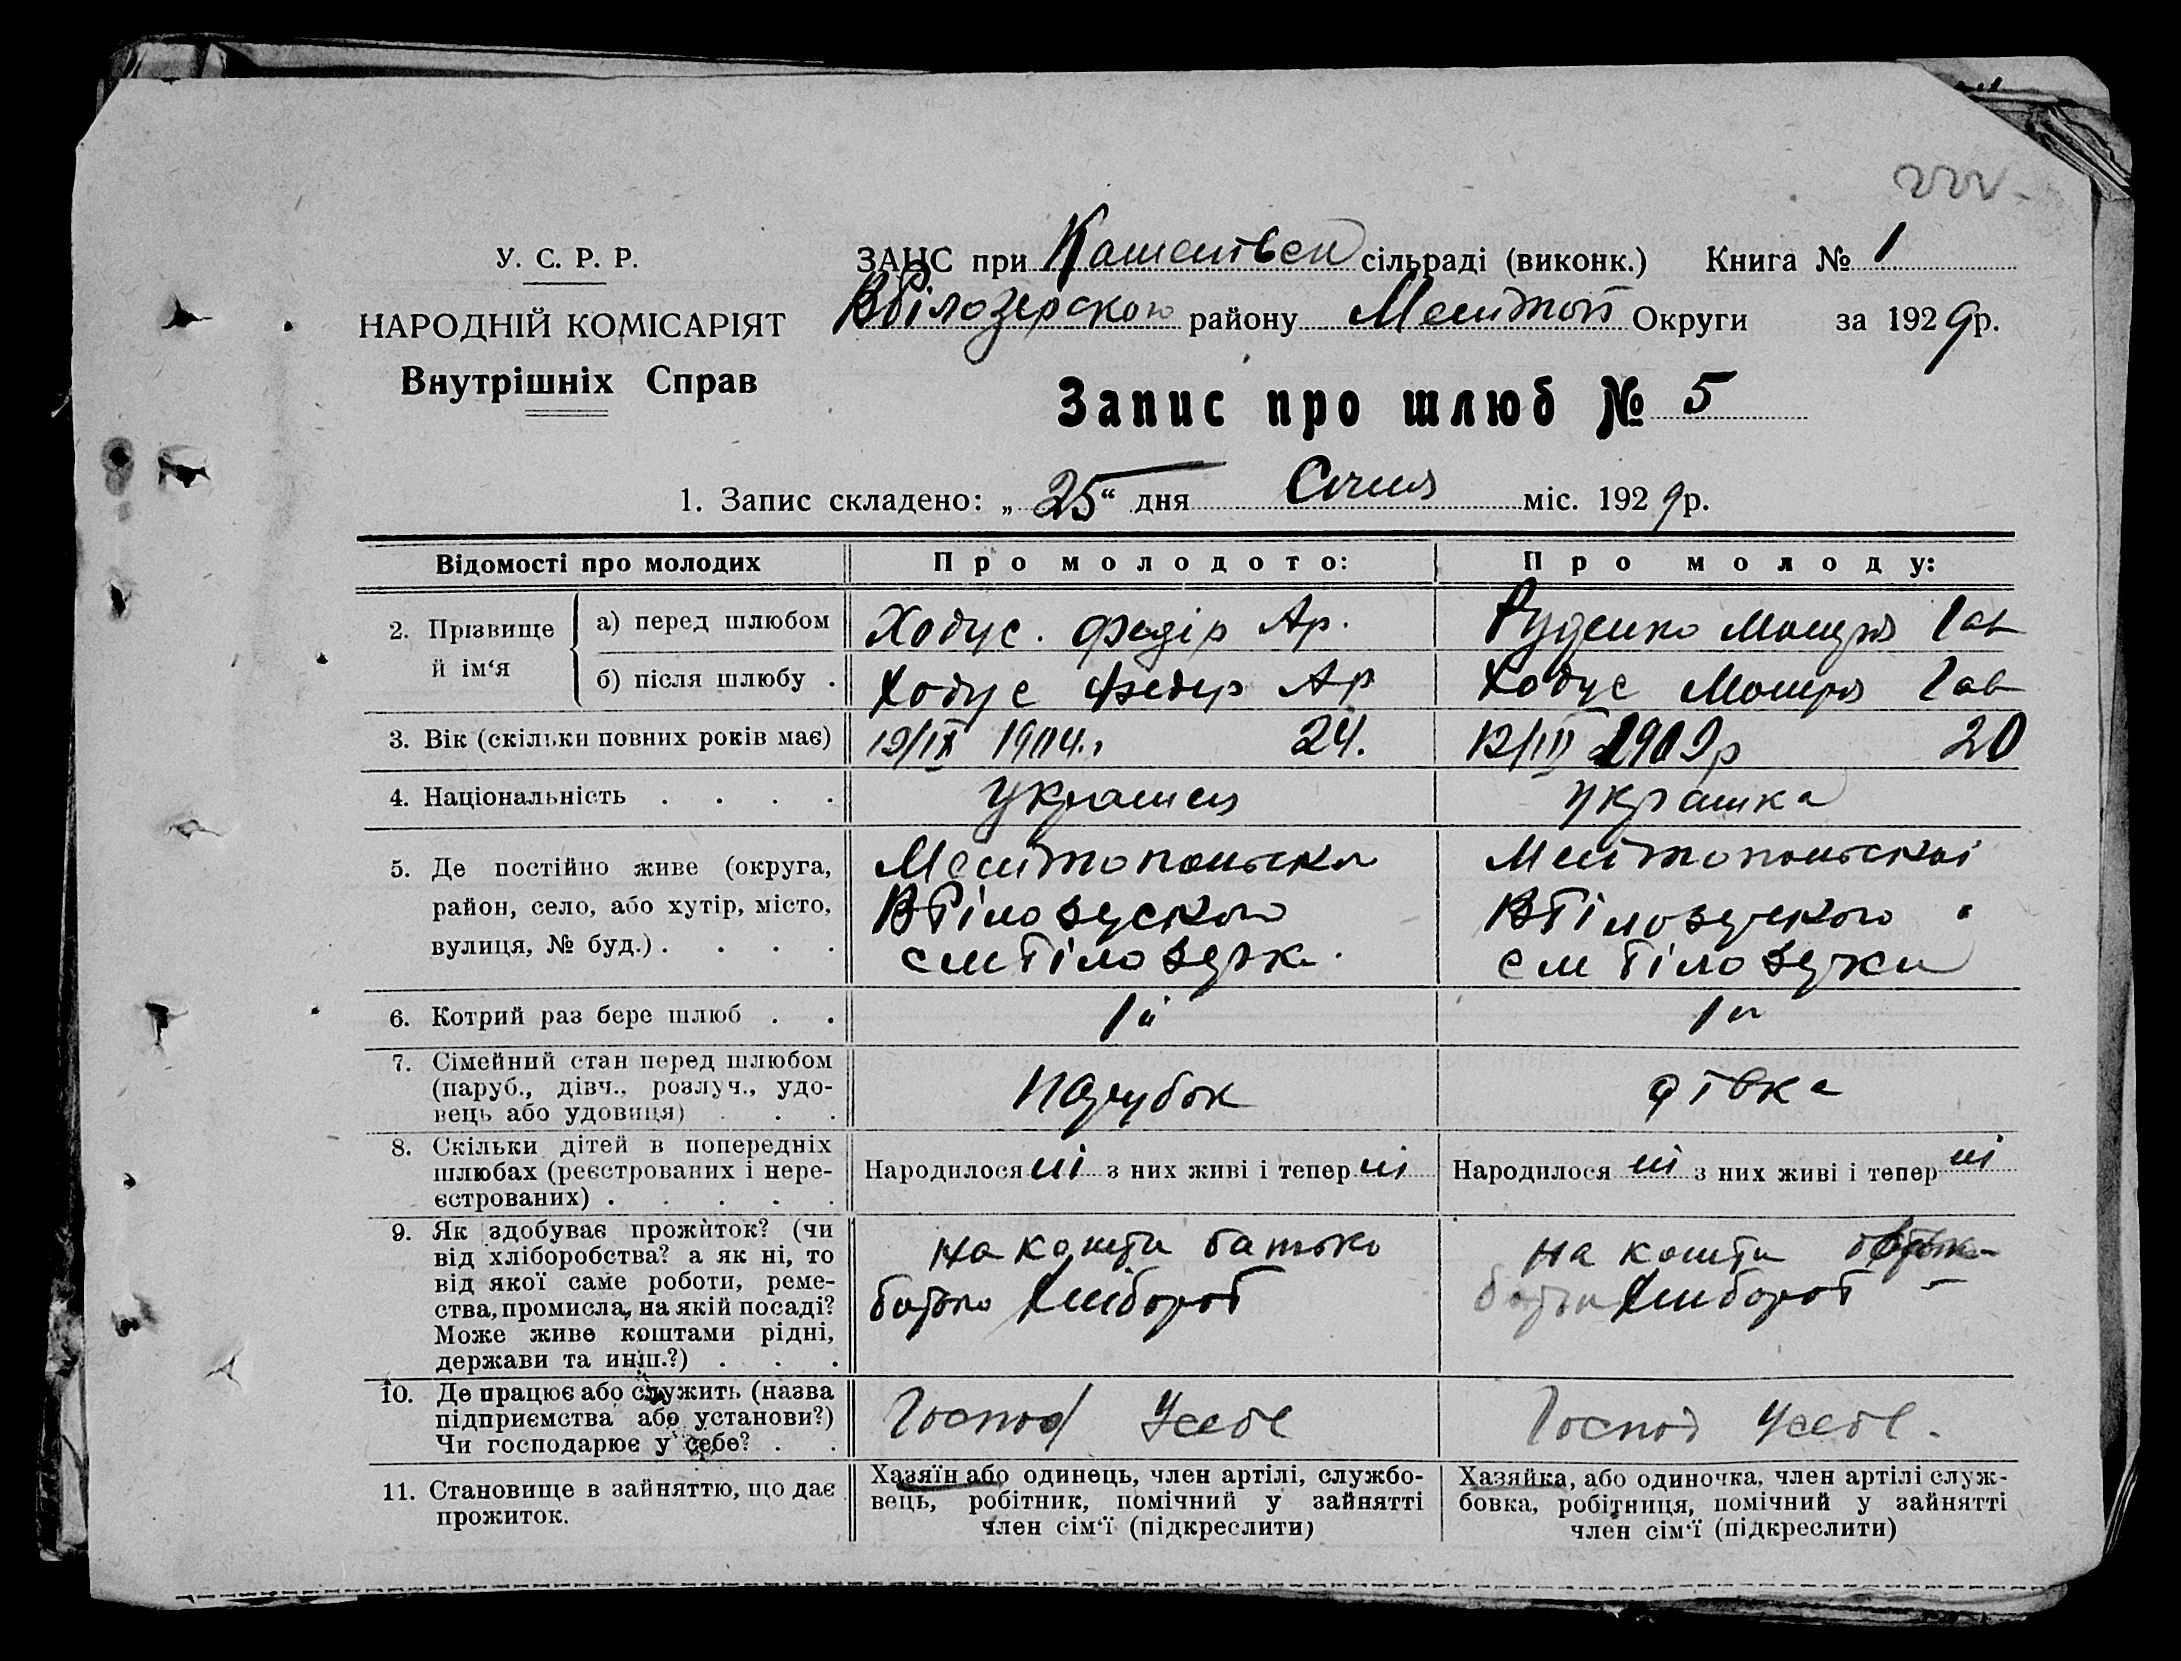 У. С. Р. Р.
НАРОДНІЙ КОМІСАРІЯТ
Внутрішніх Справ
ЗАЦС при сільраді (виконк.) Книга № 1
ВБілозерского району Мелітоп Округи за 1929р.
Запис про шлюб № 5
1. Запис складено: „25“ дня Січня міс. 1929р.
Відомості про молодих
Про молодого:
Про молоду:
2. Прізвище й ім‘я
а) перед шлюбом
Ходус. Федір Ар.
Руденко Мотря Гав
б) після шлюбу .
Ходус Федир Ар
Ходус Мотря Гав
3. Вік (скільки повних років має)
19/IX 1904. 24.
12/III 1909р 20
4. Національність . . . .
Українец
Українка
5. Де постійно живе (округа,
район, село, або хутір, місто,
вулиця, № буд.) . . . .
Мелітопольска
ВБілозерского
Білозерк.
Мелітопольскоі
ВБілозерского
Білозерки
6. Котрий раз бере шлюб . .
1й
1й
7. Сімейний стан перед шлюбом
(паруб., дівч., розлуч., удо-
вець або удовиця) . . .
Парубок
дівка
8. Скільки дітей в попередніх
шлюбах (реєстрованих і нере-
єстрованих) . . . . .
Народилося ні з них живі і тепер ні
Народилося ні з них живі і тепер ні
9. Як здобуває прожиток? (чи
від хліборобства? а як ні, то
від якої саме роботи, реме-
ства, промисла, на якій посаді?
Може живе коштами рідні,
держави та инш.?) . . .
на кошти батько
батько Хлібороб
на кошти
Хлібороб
10. Де працює або служить (назва
підприємства або установи?)
Чи господарює у себе? . .
Господ Усебе
Господ Усебе.
11. Становище в зайняттю, що дає
прожиток.
Хазяїн або одинець, член артілі, службо-
вець, робітник, помічний у зайнятті
член сім‘ї (підкреслити)
Хазяйка, або одиночка, член артілі служ-
бовка, робітниця, помічний у зайнятті
член сім‘ї (підкреслити)